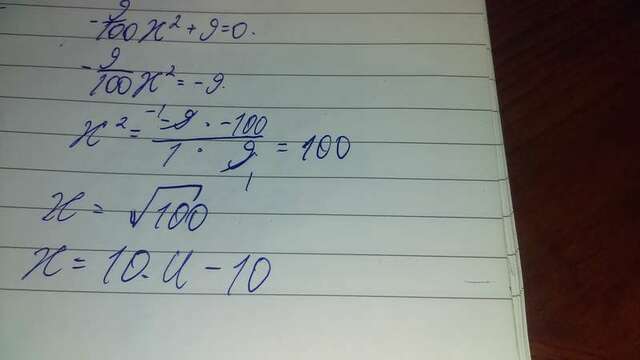 -9/100 x² + 9 = 0.
-9/100 x² = -9.
x² = -1 -9 · -100 / 1 · 9 1 = 100
x = √100
x = 10. и -10